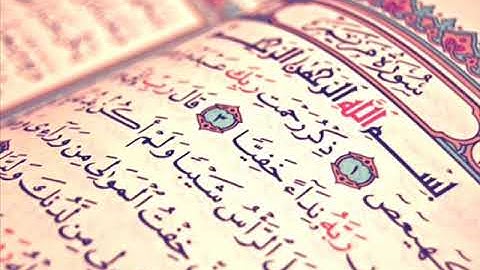 سُورَةُ مَرْيَمَ
بِسْمِ اللَّهِ الرَّحْمَٰنِ الرَّحِيمِ
كٓهيعٓصٓ ١ ذِكْرُ رَحْمَتِ رَبِّكَ عَبْدَهُ
رَبَّهُ نِدَآءً خَفِيًّا ٣ قَالَ رَبِّ
الرَّأْسُ شَيْبًا وَلَمْ أَكُنۢ
خِفْتُ الْمَوَٰلِيَ مِن وَرَآءِى
لِي مِن لَّدُنكَ وَلِيًّا